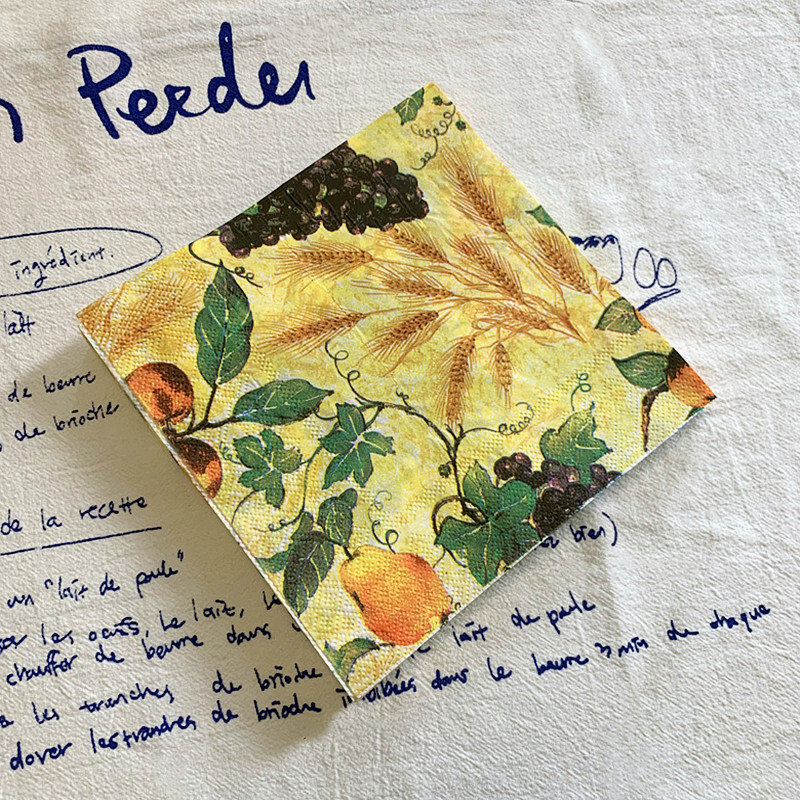 n Perdu
ingrédient.
lait
de beurre
de brioche
de la recette
un "lait de poule"
les oeufs, le lait,
bien)
chauffer de beurre dans
lait de poule
les tranches de brioche
dorer les trandres de brioche imbibées dans le beurre 3 min de chaque